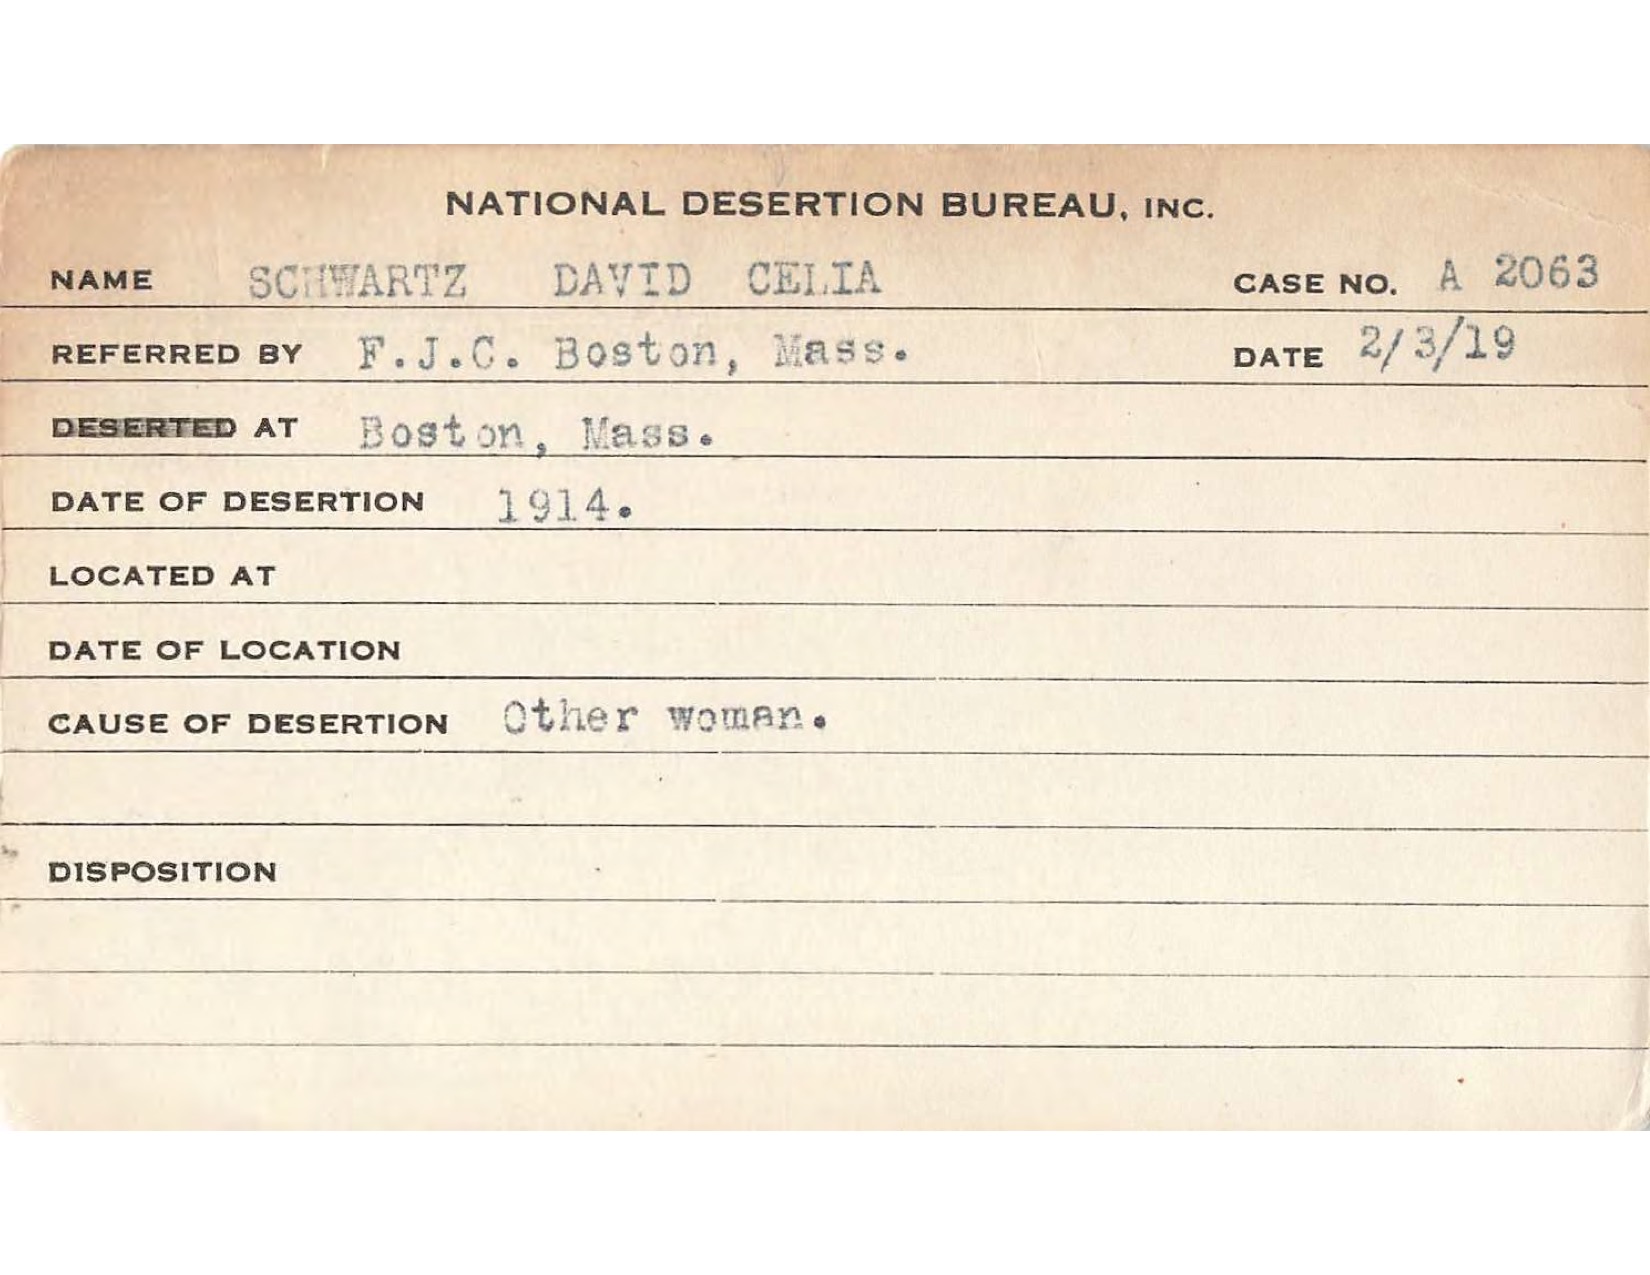 NATIONAL DESERTION BUREAU, INC.
NAME SCHWARTZ DAVID CELIA CASE NO. A 2063
REFERRED BY F.J.C. Boston, Mass. DATE 2/3/19
DESERTED AT Boston, Mass.
DATE OF DESERTION 1914.
LOCATED AT
DATE OF LOCATION
CAUSE OF DESERTION Other woman.
DISPOSITION